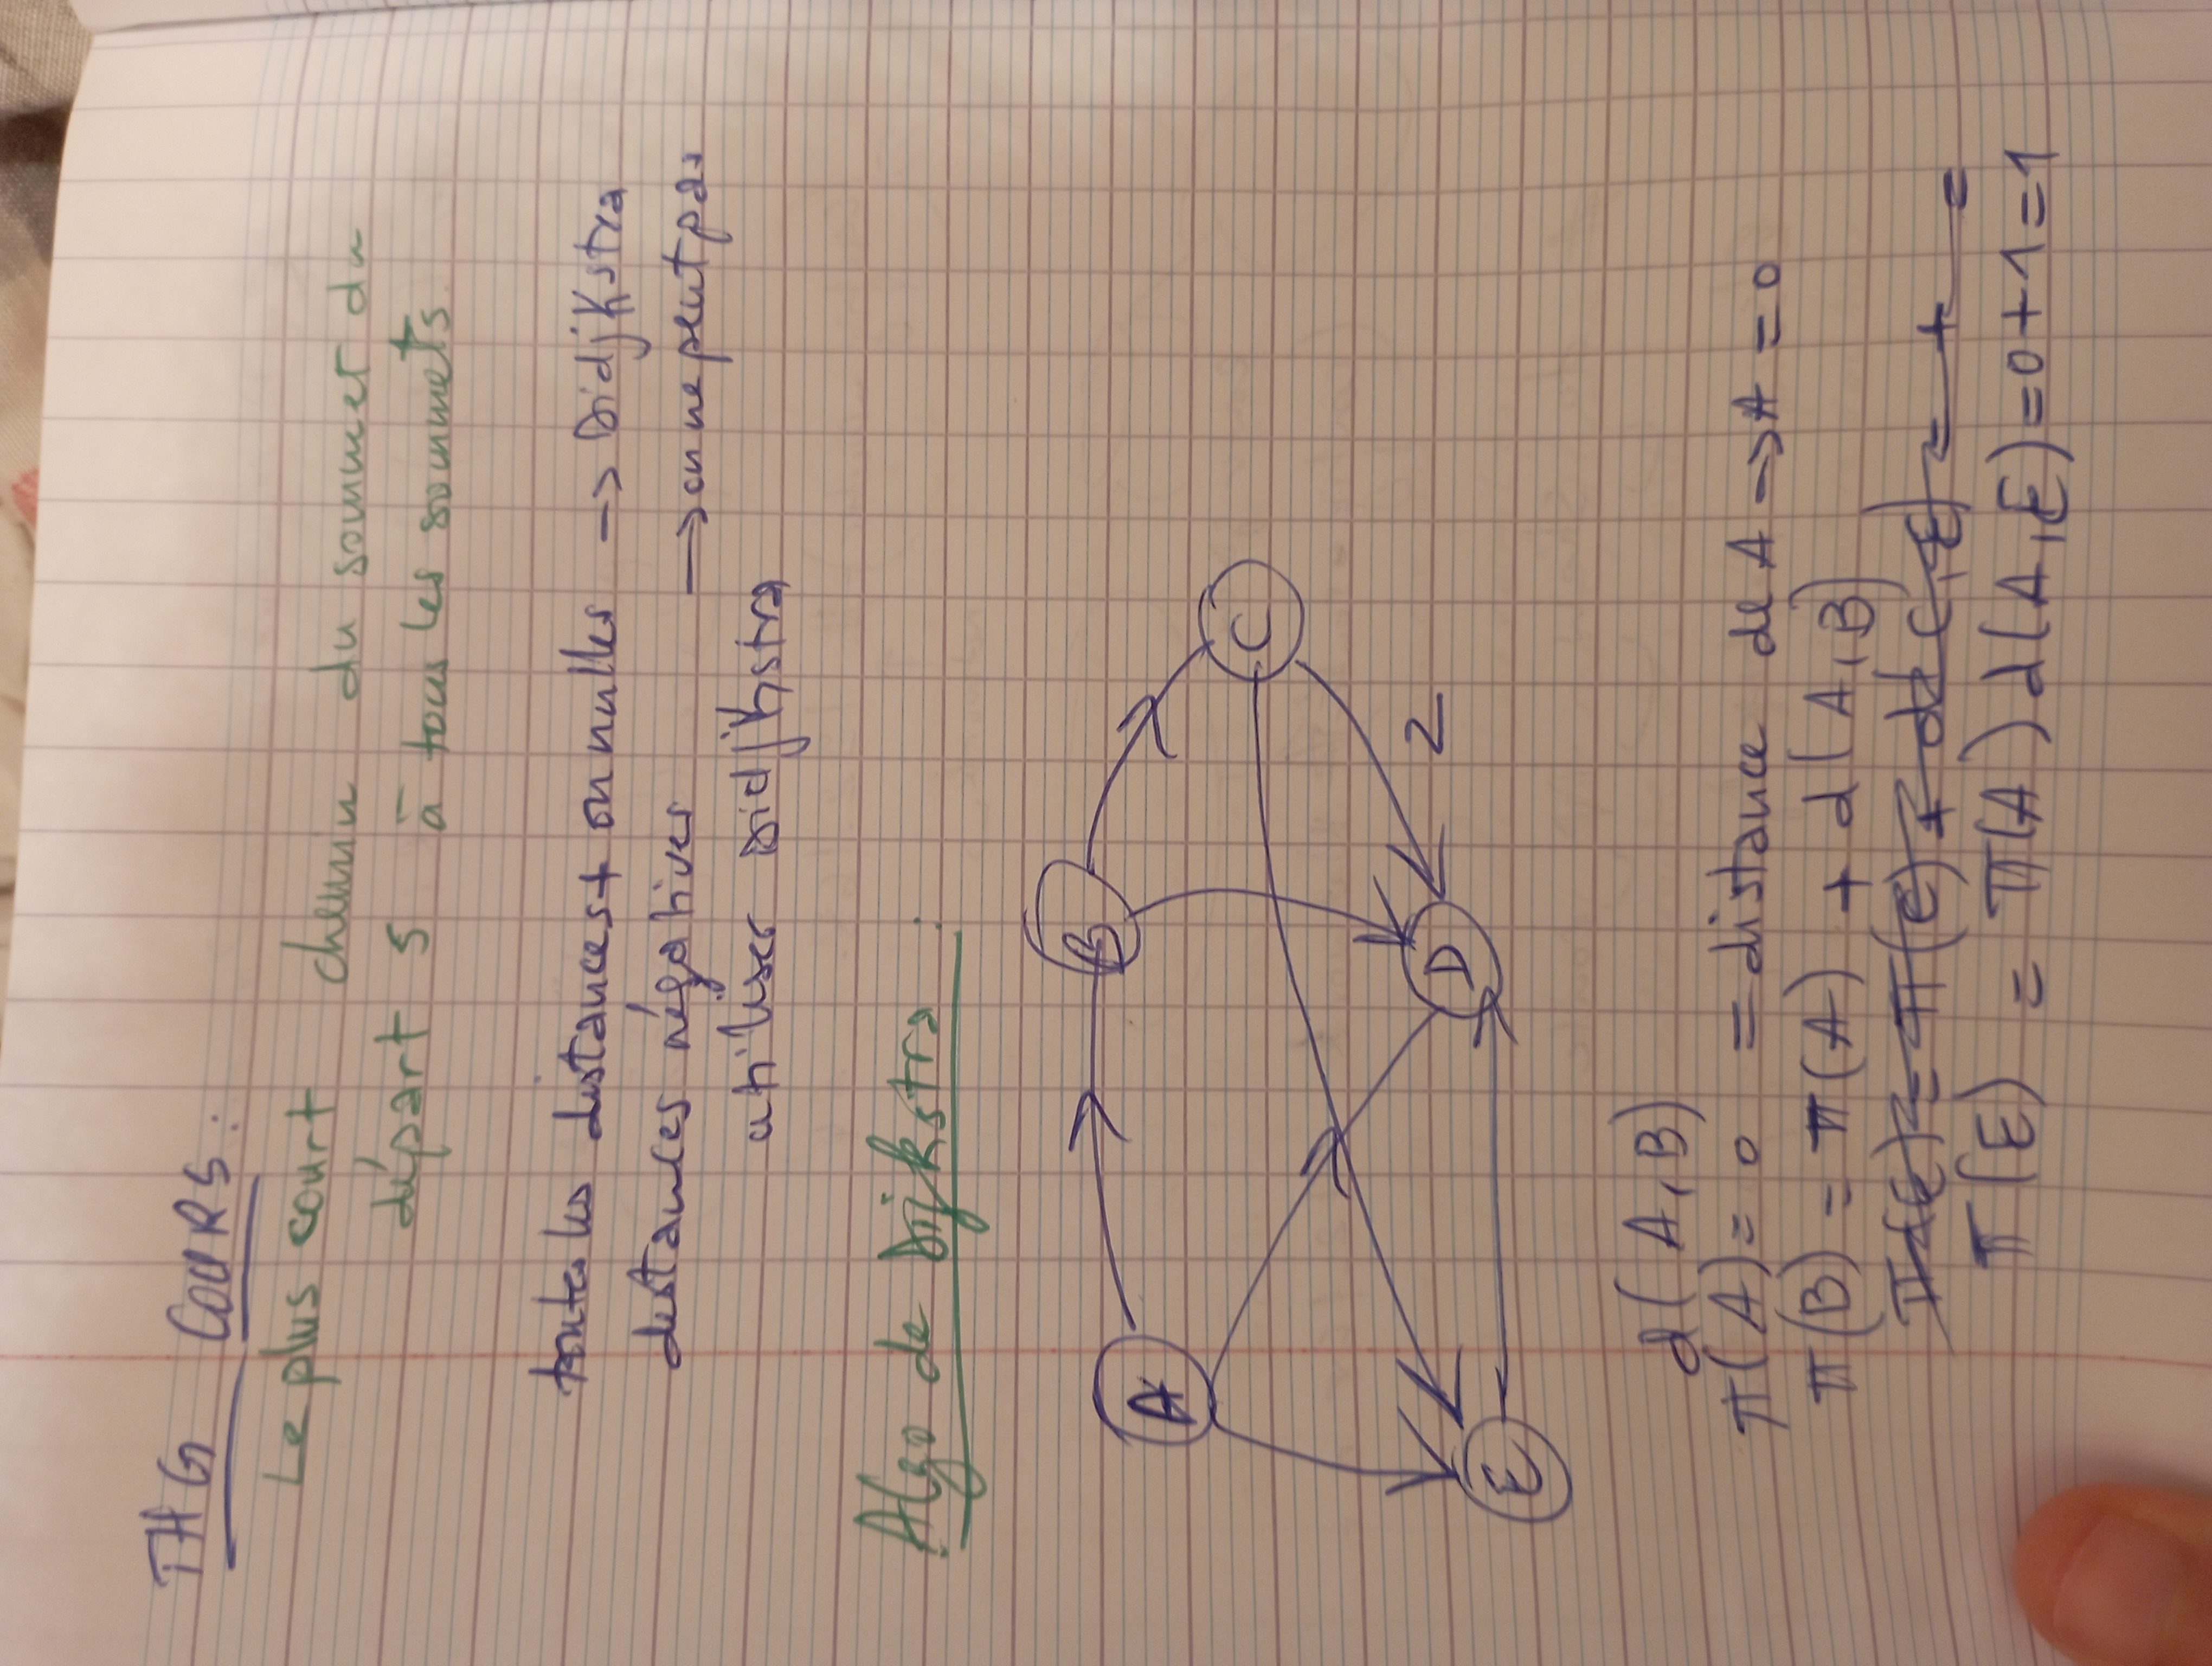 THG COURS :
Le plus court chemin du sommet du
départ s à tous les sommets
toutes les distances + ou nulles -> Didjkstra
distances négatives -> on ne peut pas
utiliser Didjkstra
Algo de Dijkstra :
A
B
E
D
C
2
d(A,B)
π(A) = 0 = distance de A -> A = 0
π(B) = π(A) + d(A,B)
π(E) = π(A) d(A,E) = 0 + 1 = 1